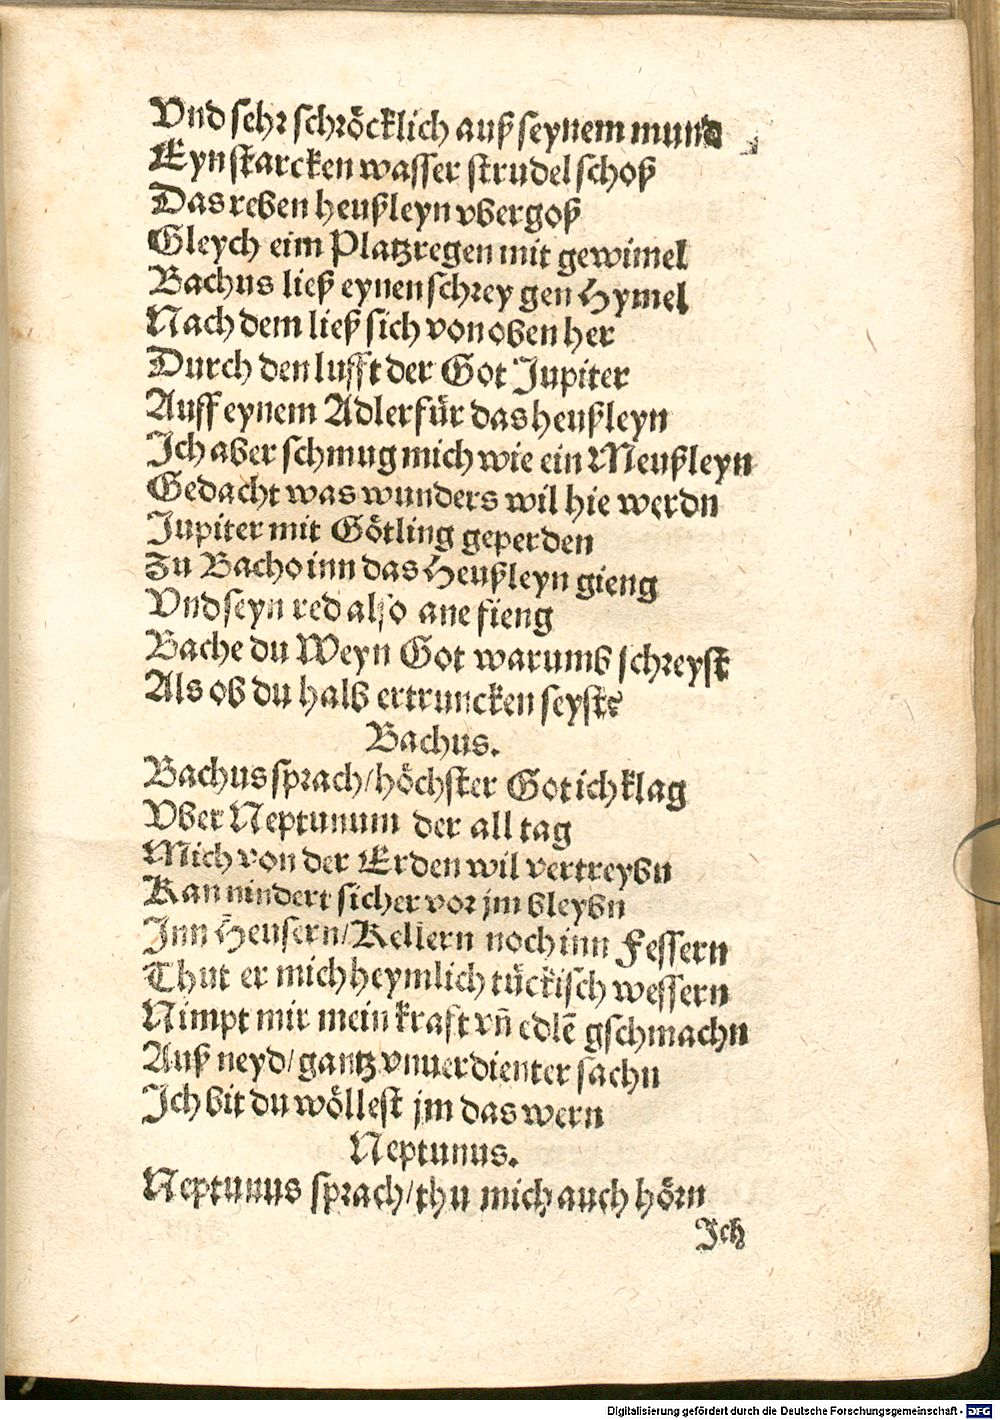 Vnd sehr schröcklich auß seynem mund
Eyn starcken wasser strudel schoß
Das reben heußleyn vbergoß
Gleych eim Platzregen mit gewimel
Bachus ließ eynen schrey gen Hymel
Nach dem ließ sich von oben her
Durch den lufft der Got Jupiter
Auff eynem Adler für das heußleyn
Ich aber schmug mich wie ein Meußleyn
Gedacht was wunders wil hie werdn
Jupiter mit Götling geperden
Zu Bacho inn das Heußleyn gieng
Vnd seyn red also ane fieng
Bache du Weyn Got warumb schreyst
Als ob du halb ertruncken seyst?
Bachus.
Bachus sprach/höchster Got ich klag
Vber Neptunum der all tag
Mich von der Erden wil vertreybn
Kan nindert sicher vor jm bleybn
Inn Heusern/Kellern noch inn Fessern
Thut er mich heymlich tückisch wessern
Nimpt mir mein kraft vñ edlẽ gschmachn
Auß neyd/gantz vnuerdienter sachn
Ich bit du wöllest jm das wern
Neptunus.
Neptunus sprach/thu mich auch hörn
Ich
Digitalisierung gefördert durch die Deutsche Forschungsgemeinschaft - DFG